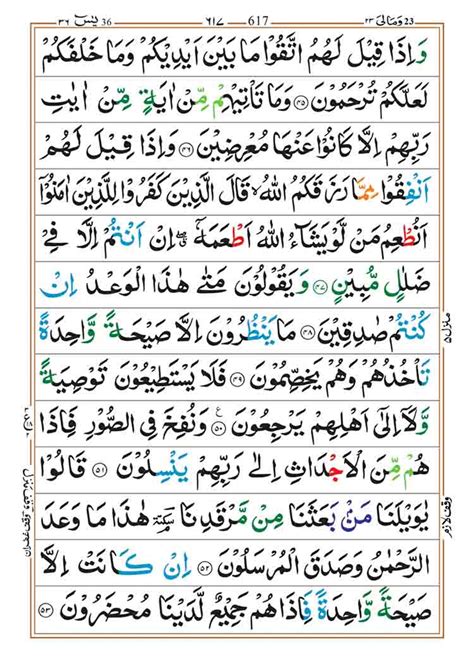 يٰسٓ 36 ٣٦ 617 ٦١٧ وَمَالِیَ 23 ٢٣
وَاِذَا قِيْلَ لَهُمُ اتَّقُوْا مَا بَيْنَ اَيْدِيْكُمْ وَمَا خَلْفَكُمْ
لَعَلَّكُمْ تُرْحَمُوْنَ ﴿٤٥﴾ وَمَا تَاْتِيْهِمْ مِّنْ اٰيَةٍ مِّنْ اٰيٰتِ
رَبِّهِمْ اِلَّا كَانُوْا عَنْهَا مُعْرِضِيْنَ ﴿٤٦﴾ وَاِذَا قِيْلَ لَهُمْ
اَنْفِقُوْا مِمَّا رَزَقَكُمُ اللّٰهُ ۙ قَالَ الَّذِيْنَ كَفَرُوْا لِلَّذِيْنَ اٰمَنُوْۤا
اَنُطْعِمُ مَنْ لَّوْ يَشَآءُ اللّٰهُ اَطْعَمَهٗۤ ۖ اِنْ اَنْتُمْ اِلَّا فِيْ
ضَلٰلٍ مُّبِيْنٍ ﴿٤٧﴾ وَيَقُوْلُوْنَ مَتٰى هٰذَا الْوَعْدُ اِنْ
كُنْتُمْ صٰدِقِيْنَ ﴿٤٨﴾ مَا يَنْظُرُوْنَ اِلَّا صَيْحَةً وَّاحِدَةً
تَاْخُذُهُمْ وَهُمْ يَخِصِّمُوْنَ ﴿٤٩﴾ فَلَا يَسْتَطِيْعُوْنَ تَوْصِيَةً
وَّلَاۤ اِلٰۤى اَهْلِهِمْ يَرْجِعُوْنَ ﴿٥٠﴾ ع وَنُفِخَ فِي الصُّوْرِ فَاِذَا
هُمْ مِّنَ الْاَجْدَاثِ اِلٰى رَبِّهِمْ يَنْسِلُوْنَ ﴿٥١﴾ قَالُوْا
يٰوَيْلَنَا مَنْۢ بَعَثَنَا مِنْ مَّرْقَدِنَا ۘ سكتة هٰذَا مَا وَعَدَ
الرَّحْمٰنُ وَصَدَقَ الْمُرْسَلُوْنَ ﴿٥٢﴾ اِنْ كَانَتْ اِلَّا
صَيْحَةً وَّاحِدَةً فَاِذَا هُمْ جَمِيْعٌ لَّدَيْنَا مُحْضَرُوْنَ ﴿٥٣﴾
منزل ٥
وقف لازم
وقف غفران